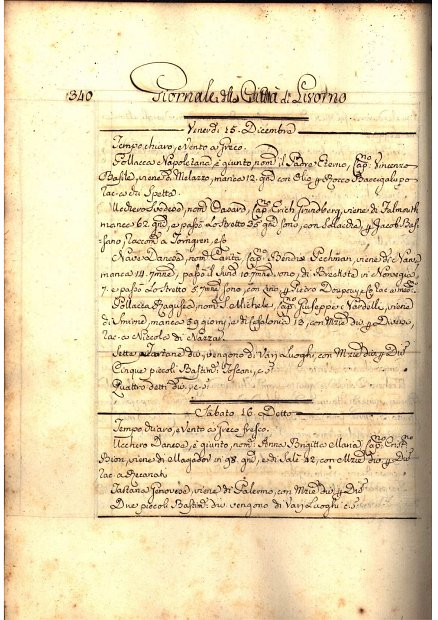 340 Giornale della Città di Livorno
Venerdì 15. Dicembre
Tempo chiaro, e Vento a Greco.
Pollacca Napoletana è giunto, nom il Padre Eterno, Cap.no Vincenzo
Basile, viene di Melazzo, manca 12. gni con Olio, p Rocco Bacegalupo
rac.a
Ucchero Svedese, nom Cap.no Erich Grundberg, viene di Falmouth
manca 62. gni e passò lo Stretto 35. gni sono, con p Jacob Bas
racc. a Törngren, e
Nave Danese, nom Carità, Cap.no Bendix Pechman, viene di
manca 14. 7mne, passò il 10. 7mne sono, di in Norvegia
7. e passò lo Stretto 5. 7mne sono, con p Pietro e C. rac a
Pollacca Ragusea, nom S. Michele, Cap.no Giuseppe Nardelli, viene
di Smirne, manca 59 giorni, e di Cefalonia 13, con Mrzie div, p Diversi,
rac. a Niccolò di
Sette Tartane div, vengono di Varj Luoghi, con Mrzie div p Div
Cinque piccoli Bastim.ti Toscani, c.s
Quattro detti div, c. s
Sabato 16. Detto
Tempo chiaro, e Vento a Greco fresco.
Ucchero Danese, è giunto, nom: Anna Brigitta Maria, Cap.no
viene di Mogador in 98. gni, e di Salè 42, con Mrzie div, p Div
rac. a
Tartana Genovese, viene di Palermo, con Mrzie div p Div
Due piccoli Bastim.ti div vengono di Varj Luoghi c. s